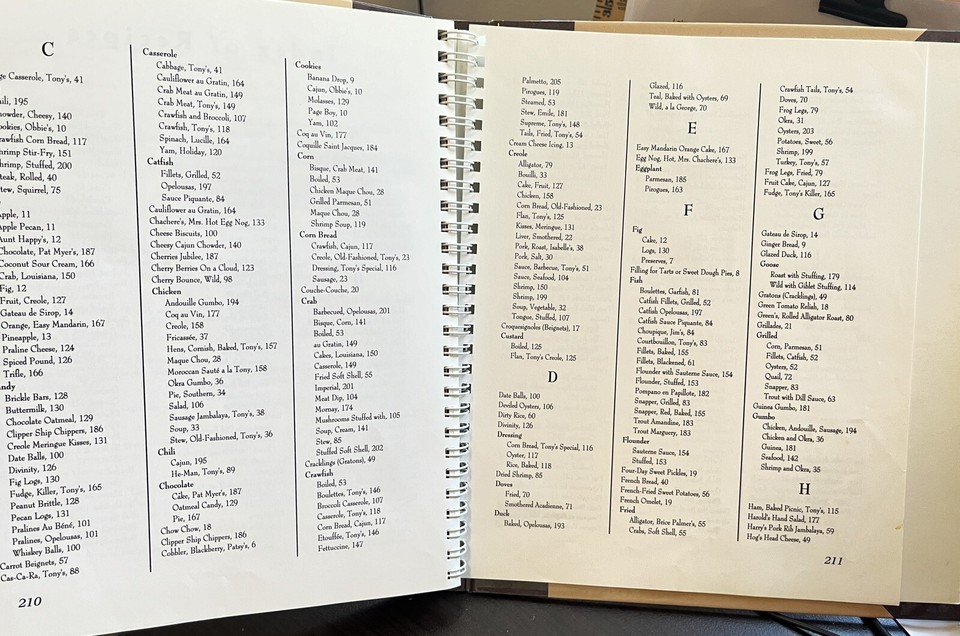 C
Casserole, Tony's, 41
195
Cheesy, 140
Obbie's, 10
Corn Bread, 117
Stir-Fry, 151
Stuffed, 200
Rolled, 40
Squirrel, 75
Apple, 11
Apple Pecan, 11
Aunt Happy's, 12
Chocolate, Pat Myer's, 187
Coconut Sour Cream, 166
Crab, Louisiana, 150
Fig, 12
Fruit, Creole, 127
Gateau de Sirop, 14
Orange, Easy Mandarin, 167
Pineapple, 13
Praline Cheese, 124
Spiced Pound, 126
Trifle, 166
Brickle Bars, 128
Buttermilk, 130
Chocolate Oatmeal, 129
Clipper Ship Chippers, 186
Creole Meringue Kisses, 131
Date Balls, 100
Divinity, 126
Fig Logs, 130
Fudge, Killer, Tony's, 165
Peanut Brittle, 128
Pecan Logs, 131
Pralines Au Béné, 101
Pralines, Opelousas, 101
Whiskey Balls, 100
Carrot Beignets, 57
Cas-Ca-Ra, Tony's, 88
210
Casserole
Cabbage, Tony's, 41
Cauliflower au Gratin, 164
Crab Meat au Gratin, 149
Crab Meat, Tony's, 149
Crawfish and Broccoli, 107
Crawfish, Tony's, 118
Spinach, Lucille, 164
Yam, Holiday, 120
Catfish
Fillets, Grilled, 52
Opelousas, 197
Sauce Piquante, 84
Cauliflower au Gratin, 164
Chachere's, Mrs. Hot Egg Nog, 133
Cheese Biscuits, 100
Cheesy Cajun Chowder, 140
Cherries Jubilee, 187
Cherry Berries On a Cloud, 123
Cherry Bounce, Wild, 98
Chicken
Andouille Gumbo, 194
Coq au Vin, 177
Creole, 158
Fricassée, 37
Hens, Cornish, Baked, Tony's, 157
Maque Chou, 28
Moroccan Sauté a la Tony, 158
Okra Gumbo, 36
Pie, Southern, 34
Salad, 106
Sausage Jambalaya, Tony's, 38
Soup, 33
Stew, Old-Fashioned, Tony's, 36
Chili
Cajun, 195
He-Man, Tony's, 89
Chocolate
Cake, Pat Myer's, 187
Oatmeal Candy, 129
Pie, 167
Chow Chow, 18
Clipper Ship Chippers, 186
Cobbler, Blackberry, Patsy's, 6
Cookies
Banana Drop, 9
Cajun, Obbie's, 10
Molasses, 129
Page Boy, 10
Yam, 102
Coq au Vin, 177
Coquille Saint Jacques, 184
Corn
Bisque, Crab Meat, 141
Boiled, 53
Chicken Maque Chou, 28
Grilled Parmesan, 51
Maque Chou, 28
Shrimp Soup, 119
Corn Bread
Crawfish, Cajun, 117
Creole, Old-Fashioned, Tony's, 23
Dressing, Tony's Special, 116
Sausage, 23
Couche-Couche, 20
Crab
Barbecued, Opelousas, 201
Bisque, Corn, 141
Boiled, 53
au Gratin, 149
Cakes, Louisiana, 150
Casserole, 149
Fried Soft Shell, 55
Imperial, 201
Meat Dip, 104
Mornay, 174
Mushrooms Stuffed with, 105
Soup, Cream, 141
Stew, 85
Stuffed Soft Shell, 202
Cracklings (Gratons), 49
Crawfish
Boiled, 53
Boulettes, Tony's, 146
Broccoli Casserole, 107
Casserole, Tony's, 118
Corn Bread, Cajun, 117
Etouffée, Tony's, 146
Fettuccine, 147
Palmetto, 205
Pirogues, 119
Steamed, 53
Stew, Emile, 181
Supreme, Tony's, 148
Tails, Fried, Tony's, 54
Cream Cheese Icing, 13
Creole
Alligator, 79
Bouilli, 33
Cake, Fruit, 127
Chicken, 158
Corn Bread, Old-Fashioned, 23
Flan, Tony's, 125
Kisses, Meringue, 131
Liver, Smothered, 22
Pork, Roast, Isabelle's, 38
Pork, Salt, 30
Sauce, Barbecue, Tony's, 51
Sauce, Seafood, 104
Shrimp, 150
Shrimp, 199
Soup, Vegetable, 32
Tongue, Stuffed, 107
Croquesignoles (Beignets), 17
Custard
Boiled, 125
Flan, Tony's Creole, 125
D
Date Balls, 100
Deviled Oysters, 106
Dirty Rice, 60
Divinity, 126
Dressing
Corn Bread, Tony's Special, 116
Oyster, 117
Rice, Baked, 118
Dried Shrimp, 85
Doves
Fried, 70
Smothered Acadienne, 71
Duck
Baked, Opelousas, 193
Glazed, 116
Teal, Baked with Oysters, 69
Wild, a la George, 70
E
Easy Mandarin Orange Cake, 167
Egg Nog, Hot, Mrs. Chachere's, 133
Eggplant
Parmesan, 185
Pirogues, 163
F
Fig
Cake, 12
Logs, 130
Preserves, 7
Filling for Tarts or Sweet Dough Pies, 8
Fish
Boulettes, Garfish, 81
Catfish Fillets, Grilled, 52
Catfish Opelousas, 197
Catfish Sauce Piquante, 84
Choupique, Jim's, 84
Courtbouillon, Tony's, 83
Fillets, Baked, 155
Fillets, Blackened, 61
Flounder with Sauterne Sauce, 154
Flounder, Stuffed, 153
Pompano en Papillote, 182
Snapper, Grilled, 83
Snapper, Red, Baked, 155
Trout Amandine, 183
Trout Marguery, 183
Flounder
Sauterne Sauce, 154
Stuffed, 153
Four-Day Sweet Pickles, 19
French Bread, 40
French-Fried Sweet Potatoes, 56
French Omelet, 19
Fried
Alligator, Brice Palmer's, 55
Crabs, Soft Shell, 55
Crawfish Tails, Tony's, 54
Doves, 70
Frog Legs, 79
Okra, 31
Oysters, 203
Potatoes, Sweet, 56
Shrimp, 199
Turkey, Tony's, 57
Frog Legs, Fried, 79
Fruit Cake, Cajun, 127
Fudge, Tony's Killer, 165
G
Gateau de Sirop, 14
Ginger Bread, 9
Glazed Duck, 116
Goose
Roast with Stuffing, 179
Wild with Giblet Stuffing, 114
Gratons (Cracklings), 49
Green Tomato Relish, 18
Green's, Rolled Alligator Roast, 80
Grillades, 21
Grilled
Corn, Parmesan, 51
Fillets, Catfish, 52
Oysters, 52
Quail, 72
Snapper, 83
Trout with Dill Sauce, 63
Guinea Gumbo, 181
Gumbo
Chicken, Andouille, Sausage, 194
Chicken and Okra, 36
Guinea, 181
Seafood, 142
Shrimp and Okra, 35
H
Ham, Baked Picnic, Tony's, 115
Harold's Hand Salad, 177
Harry's Pork Rib Jambalaya, 59
Hog's Head Cheese, 49
211